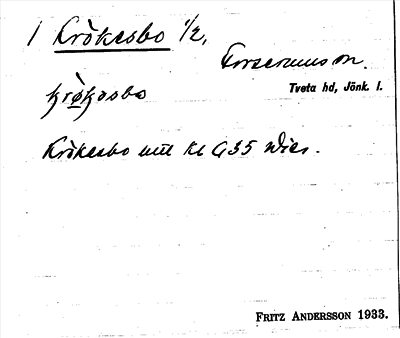 1 Krökesbo 1/2,
Forserums sn.
Tveta hd, Jönk. l.
krø̀kasbo
Krökesbo utt kl G35 Wies.
FRITZ ANDERSSON 1933.